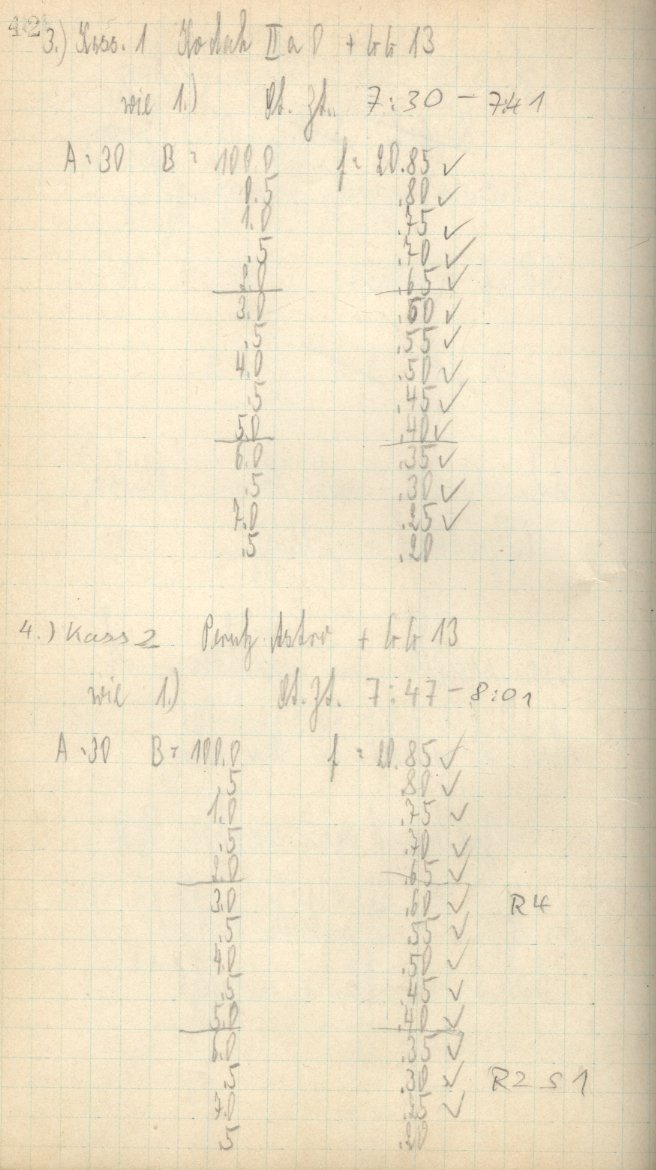 42
3.) Kass. 1 Kodak IIa0 + GG 13
wie 1.) St. Zt. 7:30 - 7:41
A = 30 B = 100.0 f = 20.85 ✓
0.5 .80 ✓
1.0 .75 ✓
.5 .70 ✓
2.0 .65 ✓
3.0 .60 ✓
.5 .55 ✓
4.0 .50 ✓
.5 .45 ✓
5.0 .40 ✓
6.0 .35 ✓
.5 .30 ✓
7.0 .25 ✓
.5 .20
4.) Kass 2 Perutz Astro + GG 13
wie 1.) St. Zt. 7:47 - 8:01
A = 30 B = 100.0 f = 20.85 ✓
.5 .80 ✓
1.0 .75 ✓
.5 .70 ✓
2.0 .65 ✓
3.0 .60 ✓ R4
.5 .55 ✓
4.0 .50 ✓
.5 .45 ✓
5.0 .40 ✓
6.0 .35 ✓
.5 .30 ✓ R2 S1
7.0 .25 ✓
.5 .20